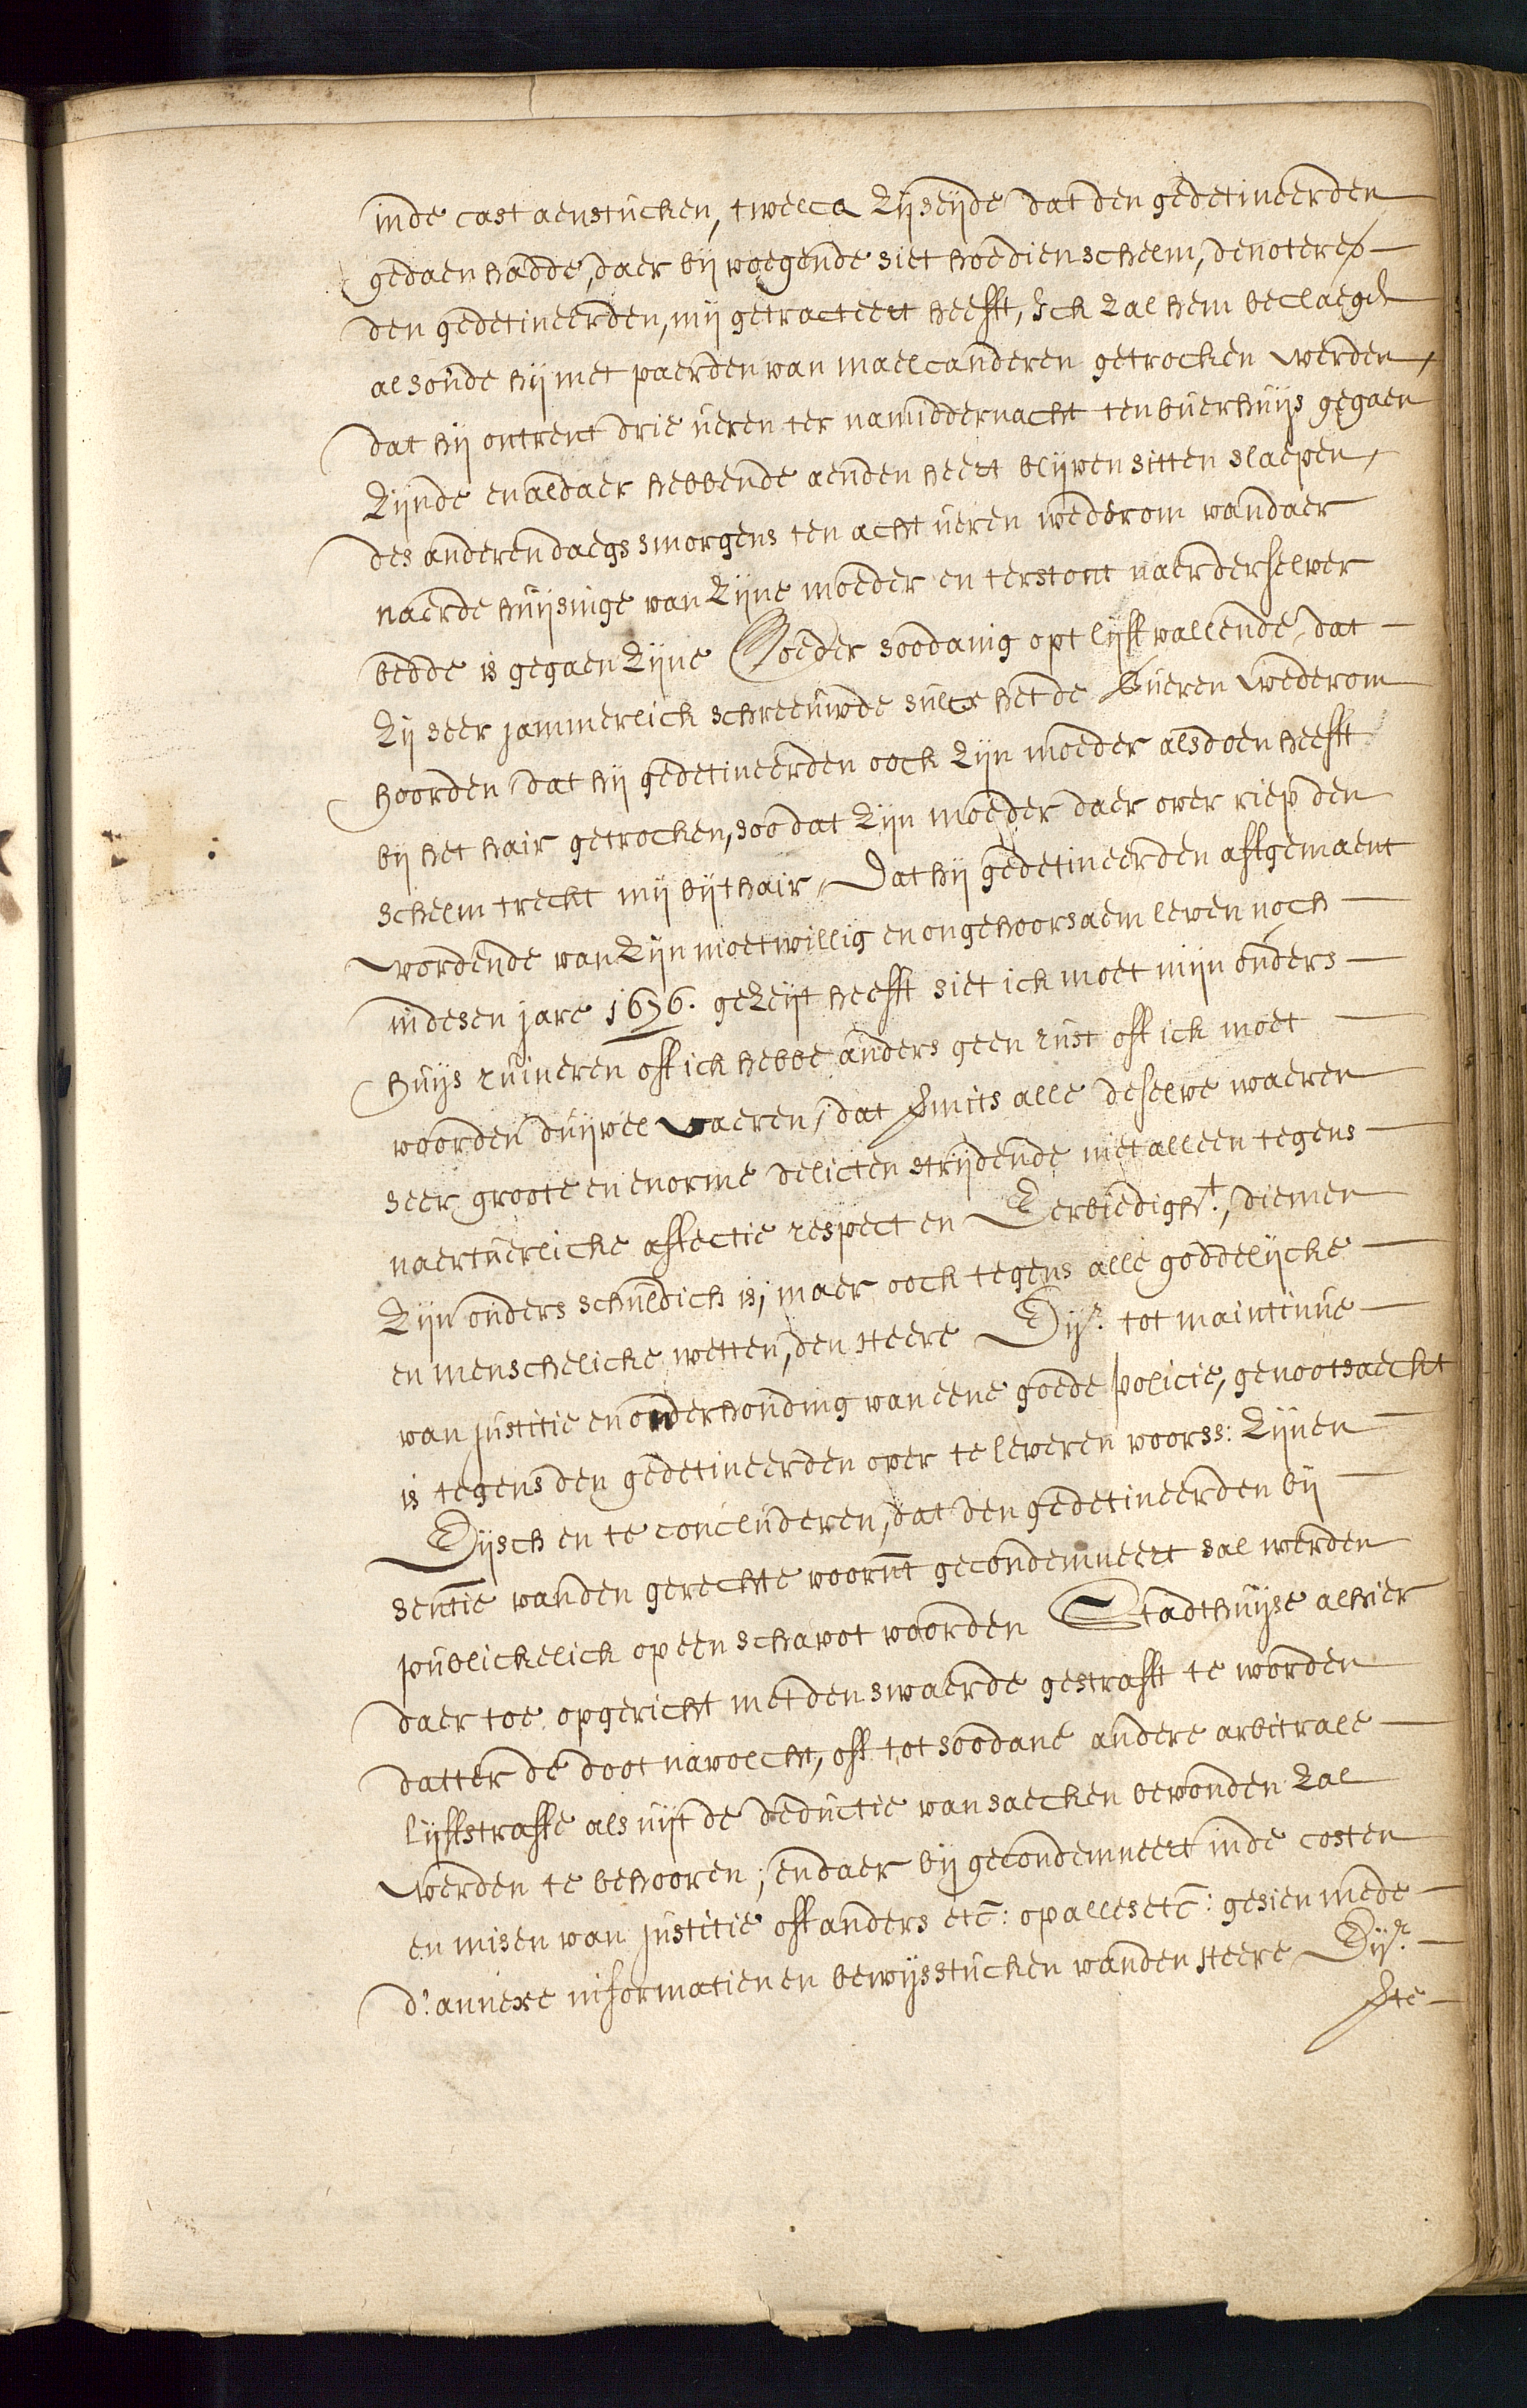 inde cast aenstucken, twelck zij seijde dat den gedetineerden
gedaen hadde, daer bij voegende siet hoe dien schelm, denoteren
den gedetineerden, mij getracteert heefft, Ick zal hem beclaegen
al soude hij met paerden van maelcanderen getrocken werden,
dat hij ontrent drie ueren ter namiddernacht ten buerhuijs gegaen
zijnde en aldaer hebbende aenden heert blijven sitten slaepen,
des anderendaegs smorgens ten acht ueren wederom vandaer
naerde huijsinge van zijne moeder en terstont naer derselver
bedde is gegaen zijne Moeder soodanig opt lijff vallende, dat
zij seer jammerlick schreeuwde sulcx het de bueren wederom
hoorden, dat hij gedetineerden oock zijn moeder alsdoen heefft
bij het hair getrocken, soo dat zijn moeder daer over riep den
schelm treckt mij bijt hair, Dat hij gedetineerden affgemaent
wordende van zijn moetwillig en ongehoorsaem leven noch
in desen jare 1676. gezeijt heefft siet ick moet mijn ouders
huijs ruineren off ick hebbe anders geen rust off ick moet
voorden duijvel vaeren, dat smits alle deselve waeren
seer groote en enorme delicten strijdende niet alleen tegens
naertuerlicke affectie respect en Eerbiedight., diemen
zijn ouders schuldich is, maer oock tegens alle goddelijcke
en menschelicke wetten, den Heere Eijr. tot maintinue
van justitie en onderhouding van eene goede policie, genootsaeckt
is tegens den gedetineerden over te leveren voorss: zijnen
Eijsch en te concluderen, dat den gedetineerden bij
sentie vanden gerechte voornt gecondemneert sal werden
publickelick op een schavot voorden Stadthuijse alhier
daer toe opgericht met den swaerde gestrafft te worden
datter de doot navolcht, off tot soodane andere arbitrale
lijffstraffe als uijt de deductie van saecken bevonden zal
werden te behooren; en daer bij gecondemneert inde costen
en misen van justitie off anders etc: op alles etc: gesien mede
d': annexe informatien en bewijsstucken vanden Heere Eijr.
ste